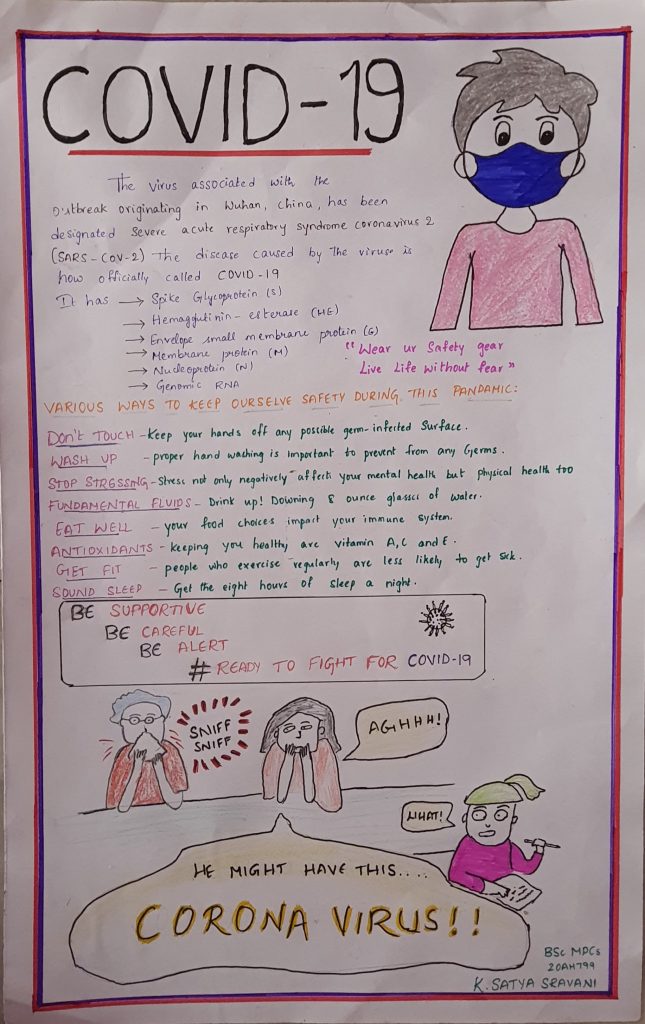 COVID-19
The virus associated with the
outbreak originating in Wuhan, China, has been
designated severe acute respiratory syndrome coronavirus 2
(SARS-CoV-2) The disease caused by the viruse is
now officially called COVID-19
It has → Spike Glycoprotein (S)
→ Hemaggutinin-esterase (HE)
→ Envelope small membrane protein (G)
→ Membrane protein (M)
→ Nucleoprotein (N)
→ Genomic RNA
"Wear ur Safety gear
Live Life without fear"
VARIOUS WAYS TO KEEP OURSELVE SAFETY DURING THIS PANDAMIC:
DON'T TOUCH - Keep your hands off any possible germ-infected Surface.
WASH UP - proper hand washing is important to prevent from any Germs.
STOP STRESSING - Stress not only negatively affects your mental health but physical health too
FUNDAMENTAL FLUIDS - Drink up! Downing 8 ounce glasses of water.
EAT WELL - your food choices impact your immune system.
ANTIOXIDANTS - keeping you healthy are vitamin A, C and E.
GET FIT - people who exercise regularly are less likely to get sick.
SOUND SLEEP - Get the eight hours of sleep a night.
BE SUPPORTIVE
BE CAREFUL
BE ALERT
# READY TO FIGHT FOR COVID-19
SNIFF
SNIFF
AGHHH!
WHAT!
HE MIGHT HAVE THIS....
CORONA VIRUS!!
BSc MPCs
20AH799
K. SATYA SRAVANI